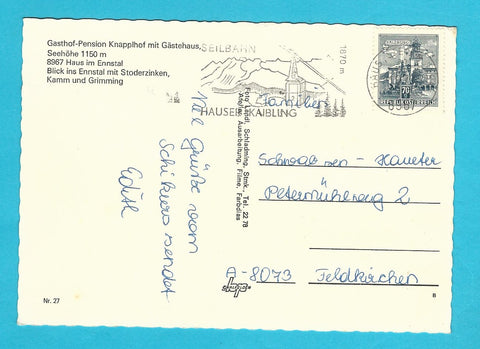 Gasthof-Pension Knapplhof mit Gästehaus,
Seehöhe 1150 m
8967 Haus im Ennstal
Blick ins Ennstal mit Stoderzinken,
Kamm und Grimming
SEILBAHN
1870 m
HAUSER KAIBLING
REPUBLIK ÖSTERREICH
70
8967
Familie
Petermühlweg 2
A-8073 Feldkirchen
Viele Grüße vom
Schikurs sendet
Edith
Foto Lendl, Schladming, Stmk., Tel. 22 78
Aufn., Ausarbeitung, Filme, Farbdias
Nr. 27
B